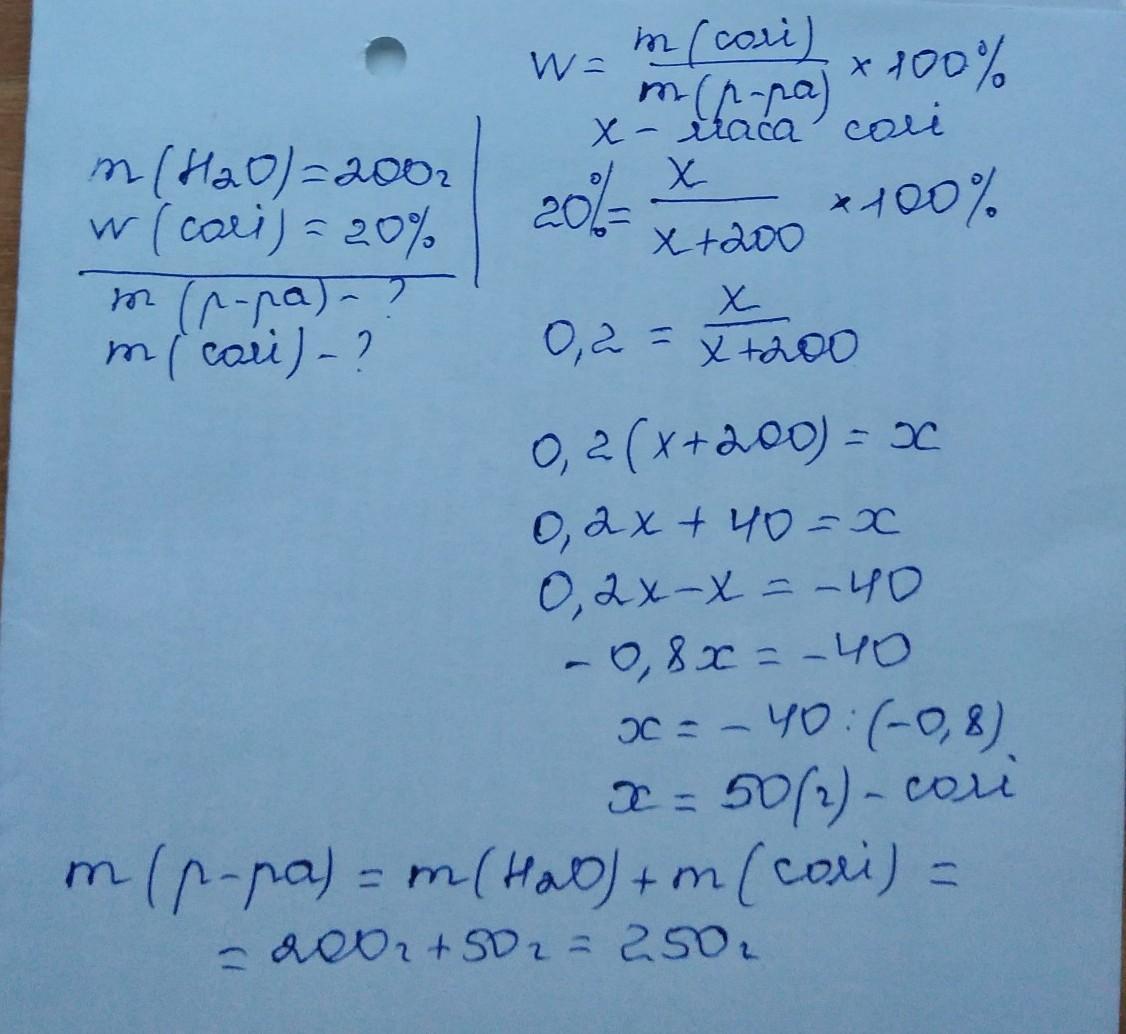 m(H2O)=200г
w(солі)=20%
m(р-ра)-?
m(солі)-?
w= m(солі)/m(р-ра) × 100%
x - маса солі
20%= x/x+200 × 100%
0,2 = x/x+200
0,2(x+200)=x
0,2x+40=x
0,2x-x=-40
-0,8x=-40
x=-40:(-0,8)
x=50(г)-солі
m(р-ра)=m(H2O)+m(солі)=
=200г+50г=250г